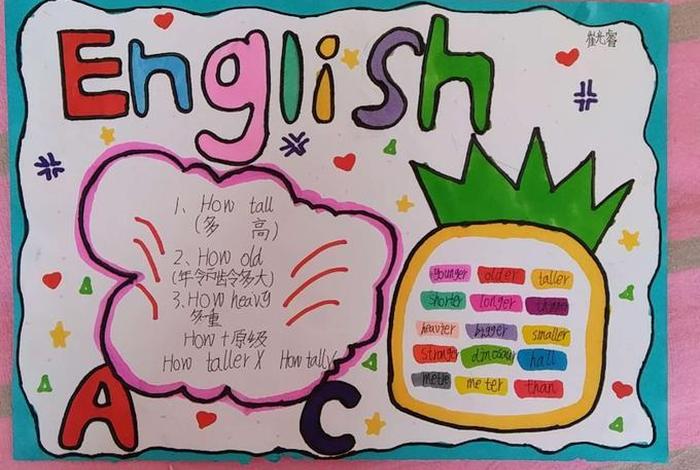 English
崔允睿
1、How tall
(多 高)
2、How old
(年令两龄令多大)
3、How heavy
多重
How + 原级
How taller X How tall√
younger older taller
shorter longer
heavier bigger smaller
stronger dinosaur hall
metre meter than
A C